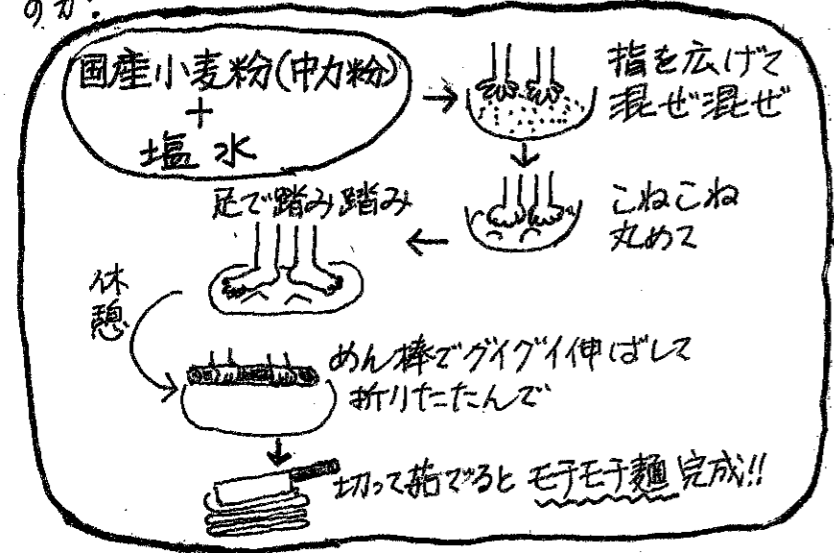 のか?
国産小麦粉(中力粉)
+
塩水
指を広げて
混ぜ混ぜ
こねこね
丸めて
足で踏み踏み
休憩
めん棒でグイグイ伸ばして
折りたたんで
切って茹でると モチモチ麺完成!!